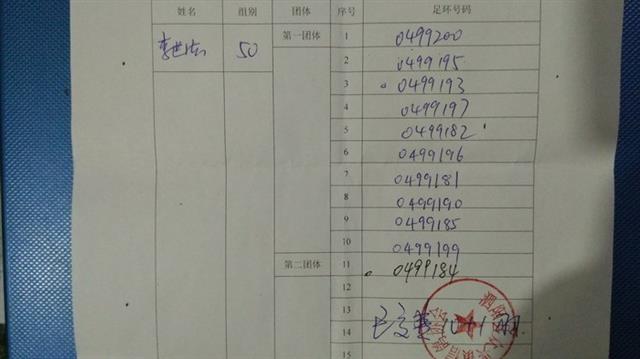 姓名 组别 团体 序号 足环号码
50 第一团体 1 0499200
2 0499195
3 0499193
4 0499197
5 0499182
6 0499196
7 0499181
8 0499190
9 0499185
10 0499199
第二团体 11 0499184
12
13
14
15